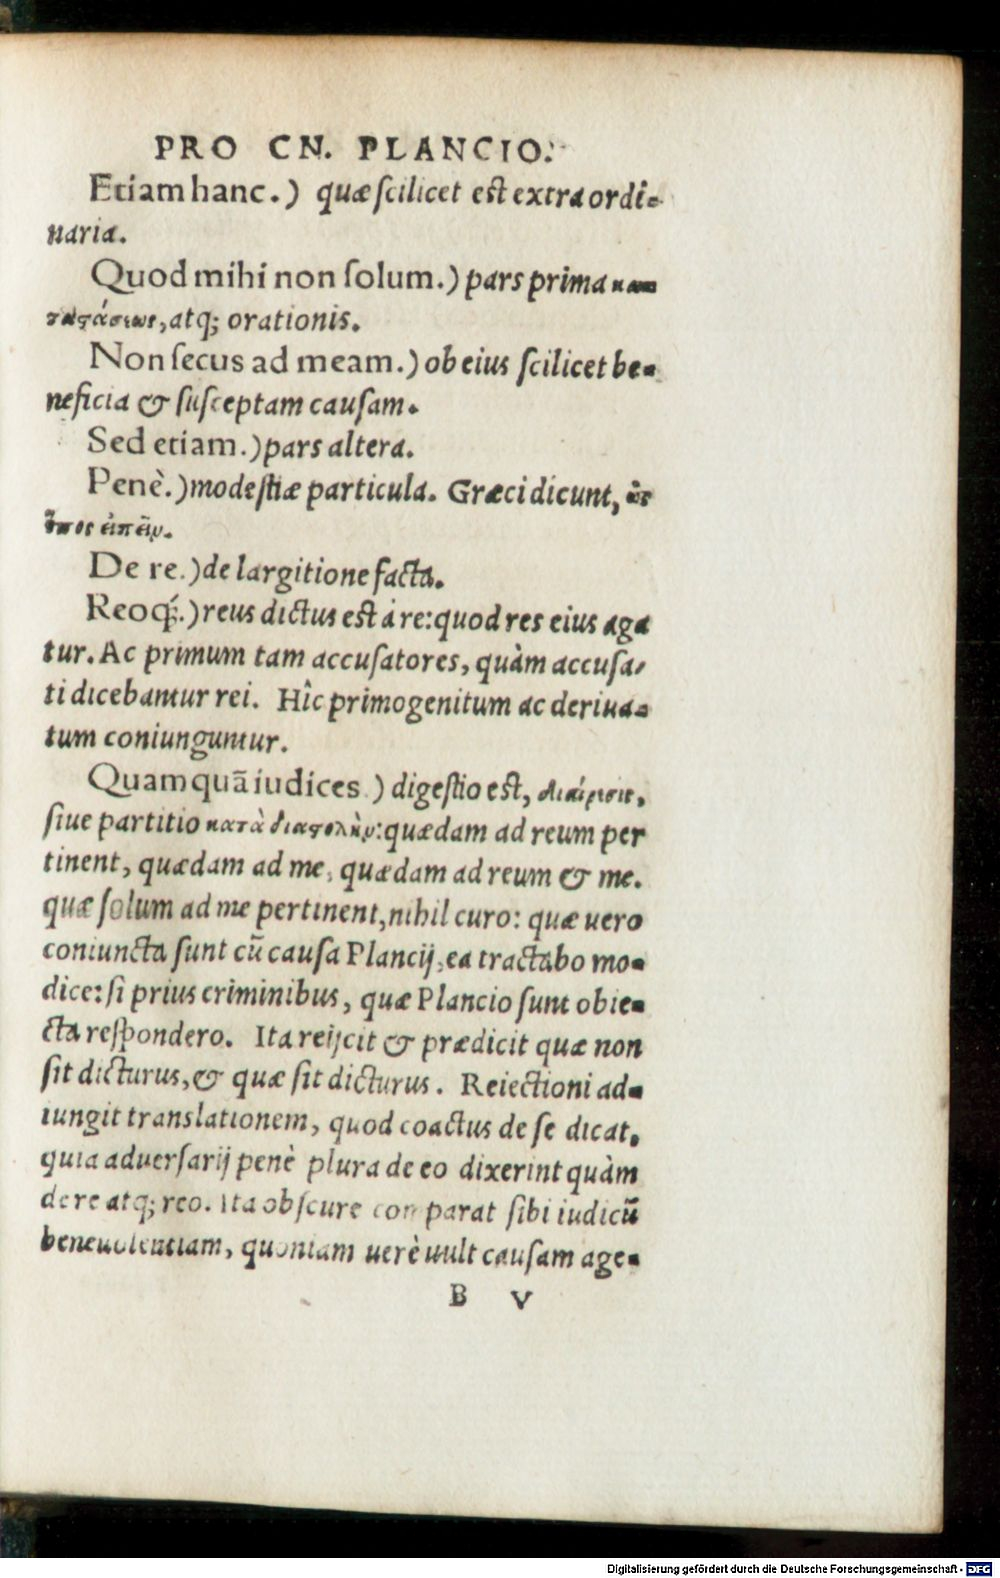 PRO CN. PLANCIO.
Etiam hanc.) quæ scilicet est extra ordi-
naria.
Quod mihi non solum.) pars prima κατα
στάσεως, atq; orationis.
Non secus ad meam.) ob eius scilicet be-
neficia & susceptam causam.
Sed etiam.) pars altera.
Penè.) modestiæ particula. Græci dicunt, ὡς
ἔπος εἰπεῖν.
De re.) de largitione facta.
Reoq́;.) reus dictus est à re: quod res eius aga
tur. Ac primum tam accusatores, quàm accusa-
ti dicebantur rei. Hîc primogenitum ac deriua-
tum coniunguntur.
Quamquã iudices.) digestio est, διαίρεσις,
siue partitio κατὰ διαστολὴν: quædam ad reum per
tinent, quædam ad me, quædam ad reum & me.
quæ solum ad me pertinent, nihil curo: quæ uero
coniuncta sunt cũ causa Plancij, ea tractabo mo-
dice: si prius criminibus, quæ Plancio sunt obie-
cta respondero. Ita reijcit & prædicit quæ non
sit dicturus, & quæ sit dicturus. Reiectioni ad-
iungit translationem, quod coactus de se dicat,
quia aduersarij penè plura de eo dixerint quàm
de re atq; reo. Ita obscure comparat sibi iudicũ
beneuolentiam, quoniam uerè uult causam age-
B V
Digitalisierung gefördert durch die Deutsche Forschungsgemeinschaft - DFG